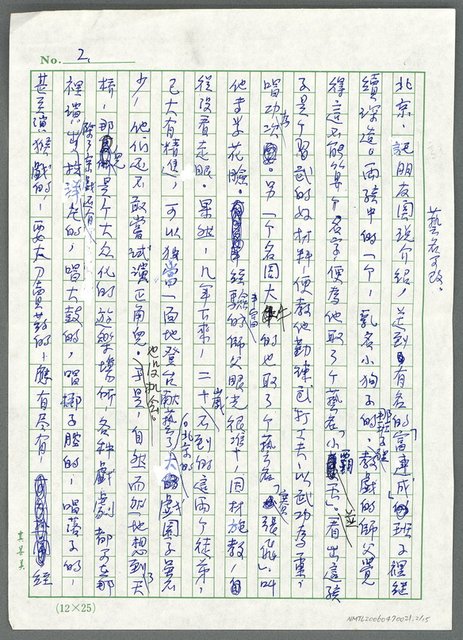 No. 2
藝名又改。
北京。託朋友關說介紹,送到有名的「富連成」班子裡繼
續深造。兩孩中的一個,乳名小狗子的,教戲的師父覺
得這不能算個名字,便為他取了個藝名「小霸天」。看出這孩
子是個習武的好材料,便教他勤練武打工夫,以武功為重,
唱功次。另一個名固大牛的也取了個藝名「賽張飛」,叫
他專學花臉。經驗豐富的師父眼光很準,因材施教,
從沒看走眼。果然,幾年下來,二十歲不到的這兩個徒弟,
已大有精進,可以獨當一面地登台獻藝了。北京的大戲園子裏
少,他們還不敢嘗試演正角兒,也沒机会。于是,自然而然地想到天
橋。那兒是個大众化的遊樂場所,各种戲劇都有在那
裡演出,除了京戲还有,唱大鼓的,唱梆子腔的,唱落子的,
甚至演猴戲的,耍大刀賣藝的,應有尽有。經
(12×25)
NMTL20060470021.2/15